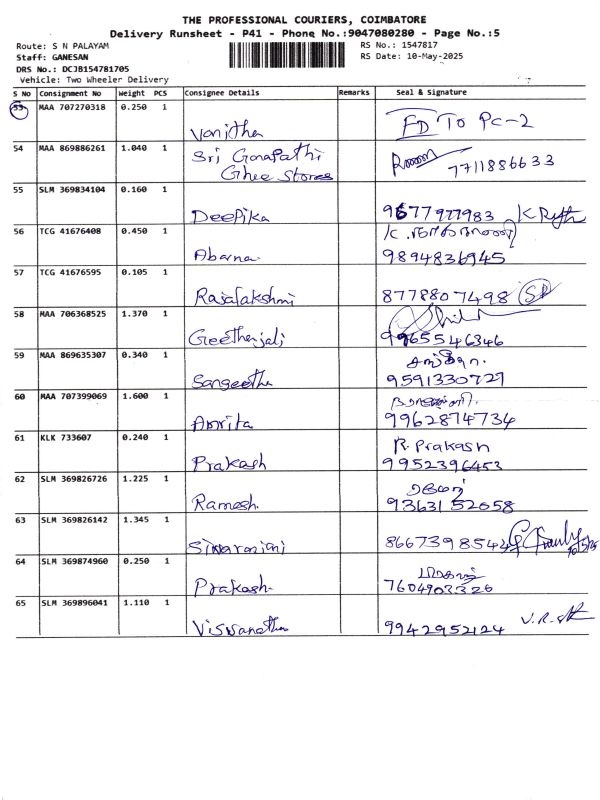 THE PROFESSIONAL COURIERS, COIMBATORE
Delivery Runsheet - P41 - Phone No.:9047080280 - Page No.:5
Route: S N PALAYAM
RS No.: 1547817
Staff: GANESAN
RS Date: 10-May-2025
DRS No.: DCJB154781705
Vehicle: Two Wheeler Delivery
S No Consignment No Weight PCS Consignee Details Remarks Seal & Signature
53 MAA 707270318 0.250 1
Vanitha FD To PC-2
54 MAA 869886261 1.040 1 Sri Ganapathi
Ghee Stores 7711886633
55 SLM 369834104 0.160 1
Deepika 9677977983
56 TCG 41676408 0.450 1
Abarna 9894836945
57 TCG 41676595 0.105 1
Rajalakshmi 8778807498
58 MAA 706368525 1.370 1
Geethanjali 9965546346
59 MAA 869635307 0.340 1
Sangeetha 9591330727
60 MAA 707399069 1.600 1
Amrita 9962874734
61 KLK 733607 0.240 1 R. Prakash
Prakash 9952396453
62 SLM 369826726 1.225 1
Ramesh 9363152058
63 SLM 369826142 1.345 1
Sivaranjani 8667398542 10/5/25
64 SLM 369874960 0.250 1
Prakash 7604903326
65 SLM 369896041 1.110 1
Viswanathan 9942952124